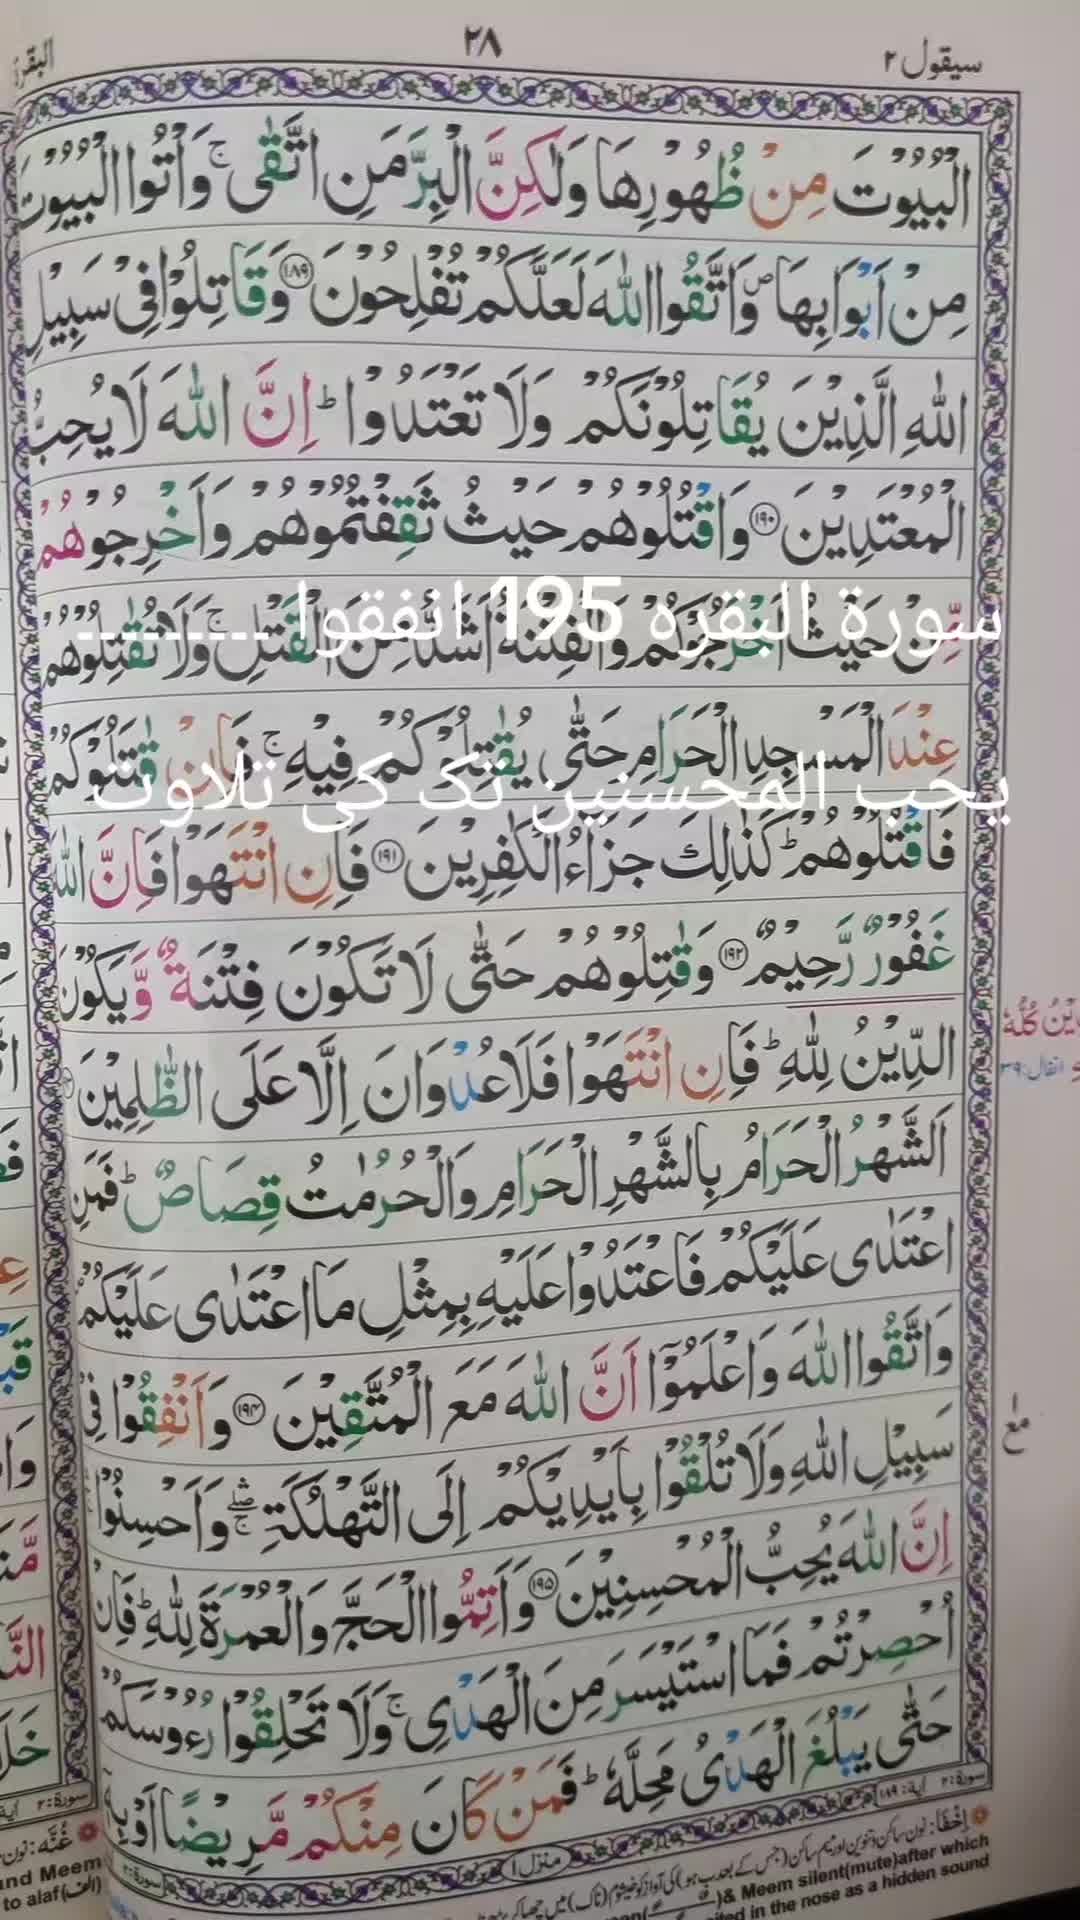 سيقول ٢
٢٨
البقرة
الْبُيُوْتَ مِنْ ظُهُوْرِهَا وَلٰكِنَّ الْبِرَّ مَنِ اتَّقٰى ۚ وَاْتُوا الْبُيُوْتَ
مِنْ اَبْوَابِهَا ۖ وَاتَّقُوا اللّٰهَ لَعَلَّكُمْ تُفْلِحُوْنَ ۝١٨٩ وَقَاتِلُوْا فِيْ سَبِيْلِ
اللّٰهِ الَّذِيْنَ يُقَاتِلُوْنَكُمْ وَلَا تَعْتَدُوْا ؕ اِنَّ اللّٰهَ لَا يُحِبُّ
الْمُعْتَدِيْنَ ۝١٩٠ وَاقْتُلُوْهُمْ حَيْثُ ثَقِفْتُمُوْهُمْ وَاَخْرِجُوْهُمْ
سورة البقره 195 انفقوا ---------
مِّنْ حَيْثُ اَخْرَجُوْكُمْ وَالْفِتْنَةُ اَشَدُّ مِنَ الْقَتْلِ ۚ وَلَا تُقٰتِلُوْهُمْ
عِنْدَ الْمَسْجِدِ الْحَرَامِ حَتّٰى يُقٰتِلُوْكُمْ فِيْهِ ۚ فَاِنْ قٰتَلُوْكُمْ
يحب المحسنين تک کی تلاوت
فَاقْتُلُوْهُمْ ؕ كَذٰلِكَ جَزَآءُ الْكٰفِرِيْنَ ۝١٩١ فَاِنِ انْتَهَوْا فَاِنَّ اللّٰهَ
غَفُوْرٌ رَّحِيْمٌ ۝١٩٢ وَقٰتِلُوْهُمْ حَتّٰى لَا تَكُوْنَ فِتْنَةٌ وَّيَكُوْنَ
الدِّيْنُ لِلّٰهِ ؕ فَاِنِ انْتَهَوْا فَلَا عُدْوَانَ اِلَّا عَلَى الظّٰلِمِيْنَ
انفال:٣٩
اَلشَّهْرُ الْحَرَامُ بِالشَّهْرِ الْحَرَامِ وَالْحُرُمٰتُ قِصَاصٌ ؕ فَمَنِ
اعْتَدٰى عَلَيْكُمْ فَاعْتَدُوْا عَلَيْهِ بِمِثْلِ مَا اعْتَدٰى عَلَيْكُمْ ۪
وَاتَّقُوا اللّٰهَ وَاعْلَمُوْٓا اَنَّ اللّٰهَ مَعَ الْمُتَّقِيْنَ ۝١٩٤ وَاَنْفِقُوْا فِيْ
سَبِيْلِ اللّٰهِ وَلَا تُلْقُوْا بِاَيْدِيْكُمْ اِلَى التَّهْلُكَةِ ۛۚ وَاَحْسِنُوْا
اِنَّ اللّٰهَ يُحِبُّ الْمُحْسِنِيْنَ ۝١٩٥ وَاَتِمُّوا الْحَجَّ وَالْعُمْرَةَ لِلّٰهِ ؕ فَاِنْ
اُحْصِرْتُمْ فَمَا اسْتَيْسَرَ مِنَ الْهَدْيِ ۚ وَلَا تَحْلِقُوْا رُءُوْسَكُمْ
حَتّٰى يَبْلُغَ الْهَدْيُ مَحِلَّهٗ ؕ فَمَنْ كَانَ مِنْكُمْ مَّرِيْضًا اَوْ بِهٖٓ
سورة:٢ آية:١٨٩
منزل ١
اِخْفَا: نون ساکن وتنوین اور میم ساکن (جس کے بعد ب ہو) کی آواز کو خیشوم (ناک) میں چھپا کر
)& Meem silent(mute)after which
in the nose as a hidden sound
غُنَّه: نون
and Meem
to alaf(الف)